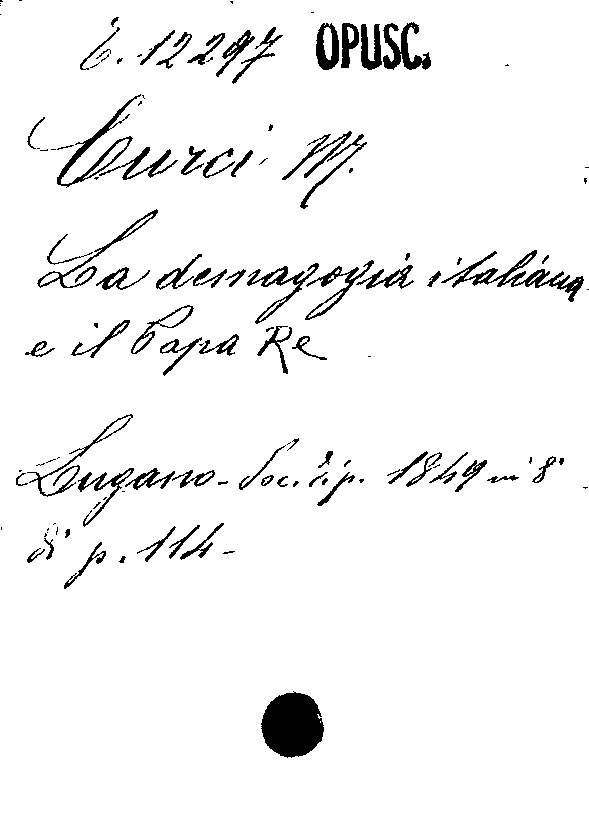 E. 12297 OPUSC.
Curci M.
La demagogia italiana
e il Papa Re
Lugano - Soc. tip. 1849 in 8°
di p. 114 -